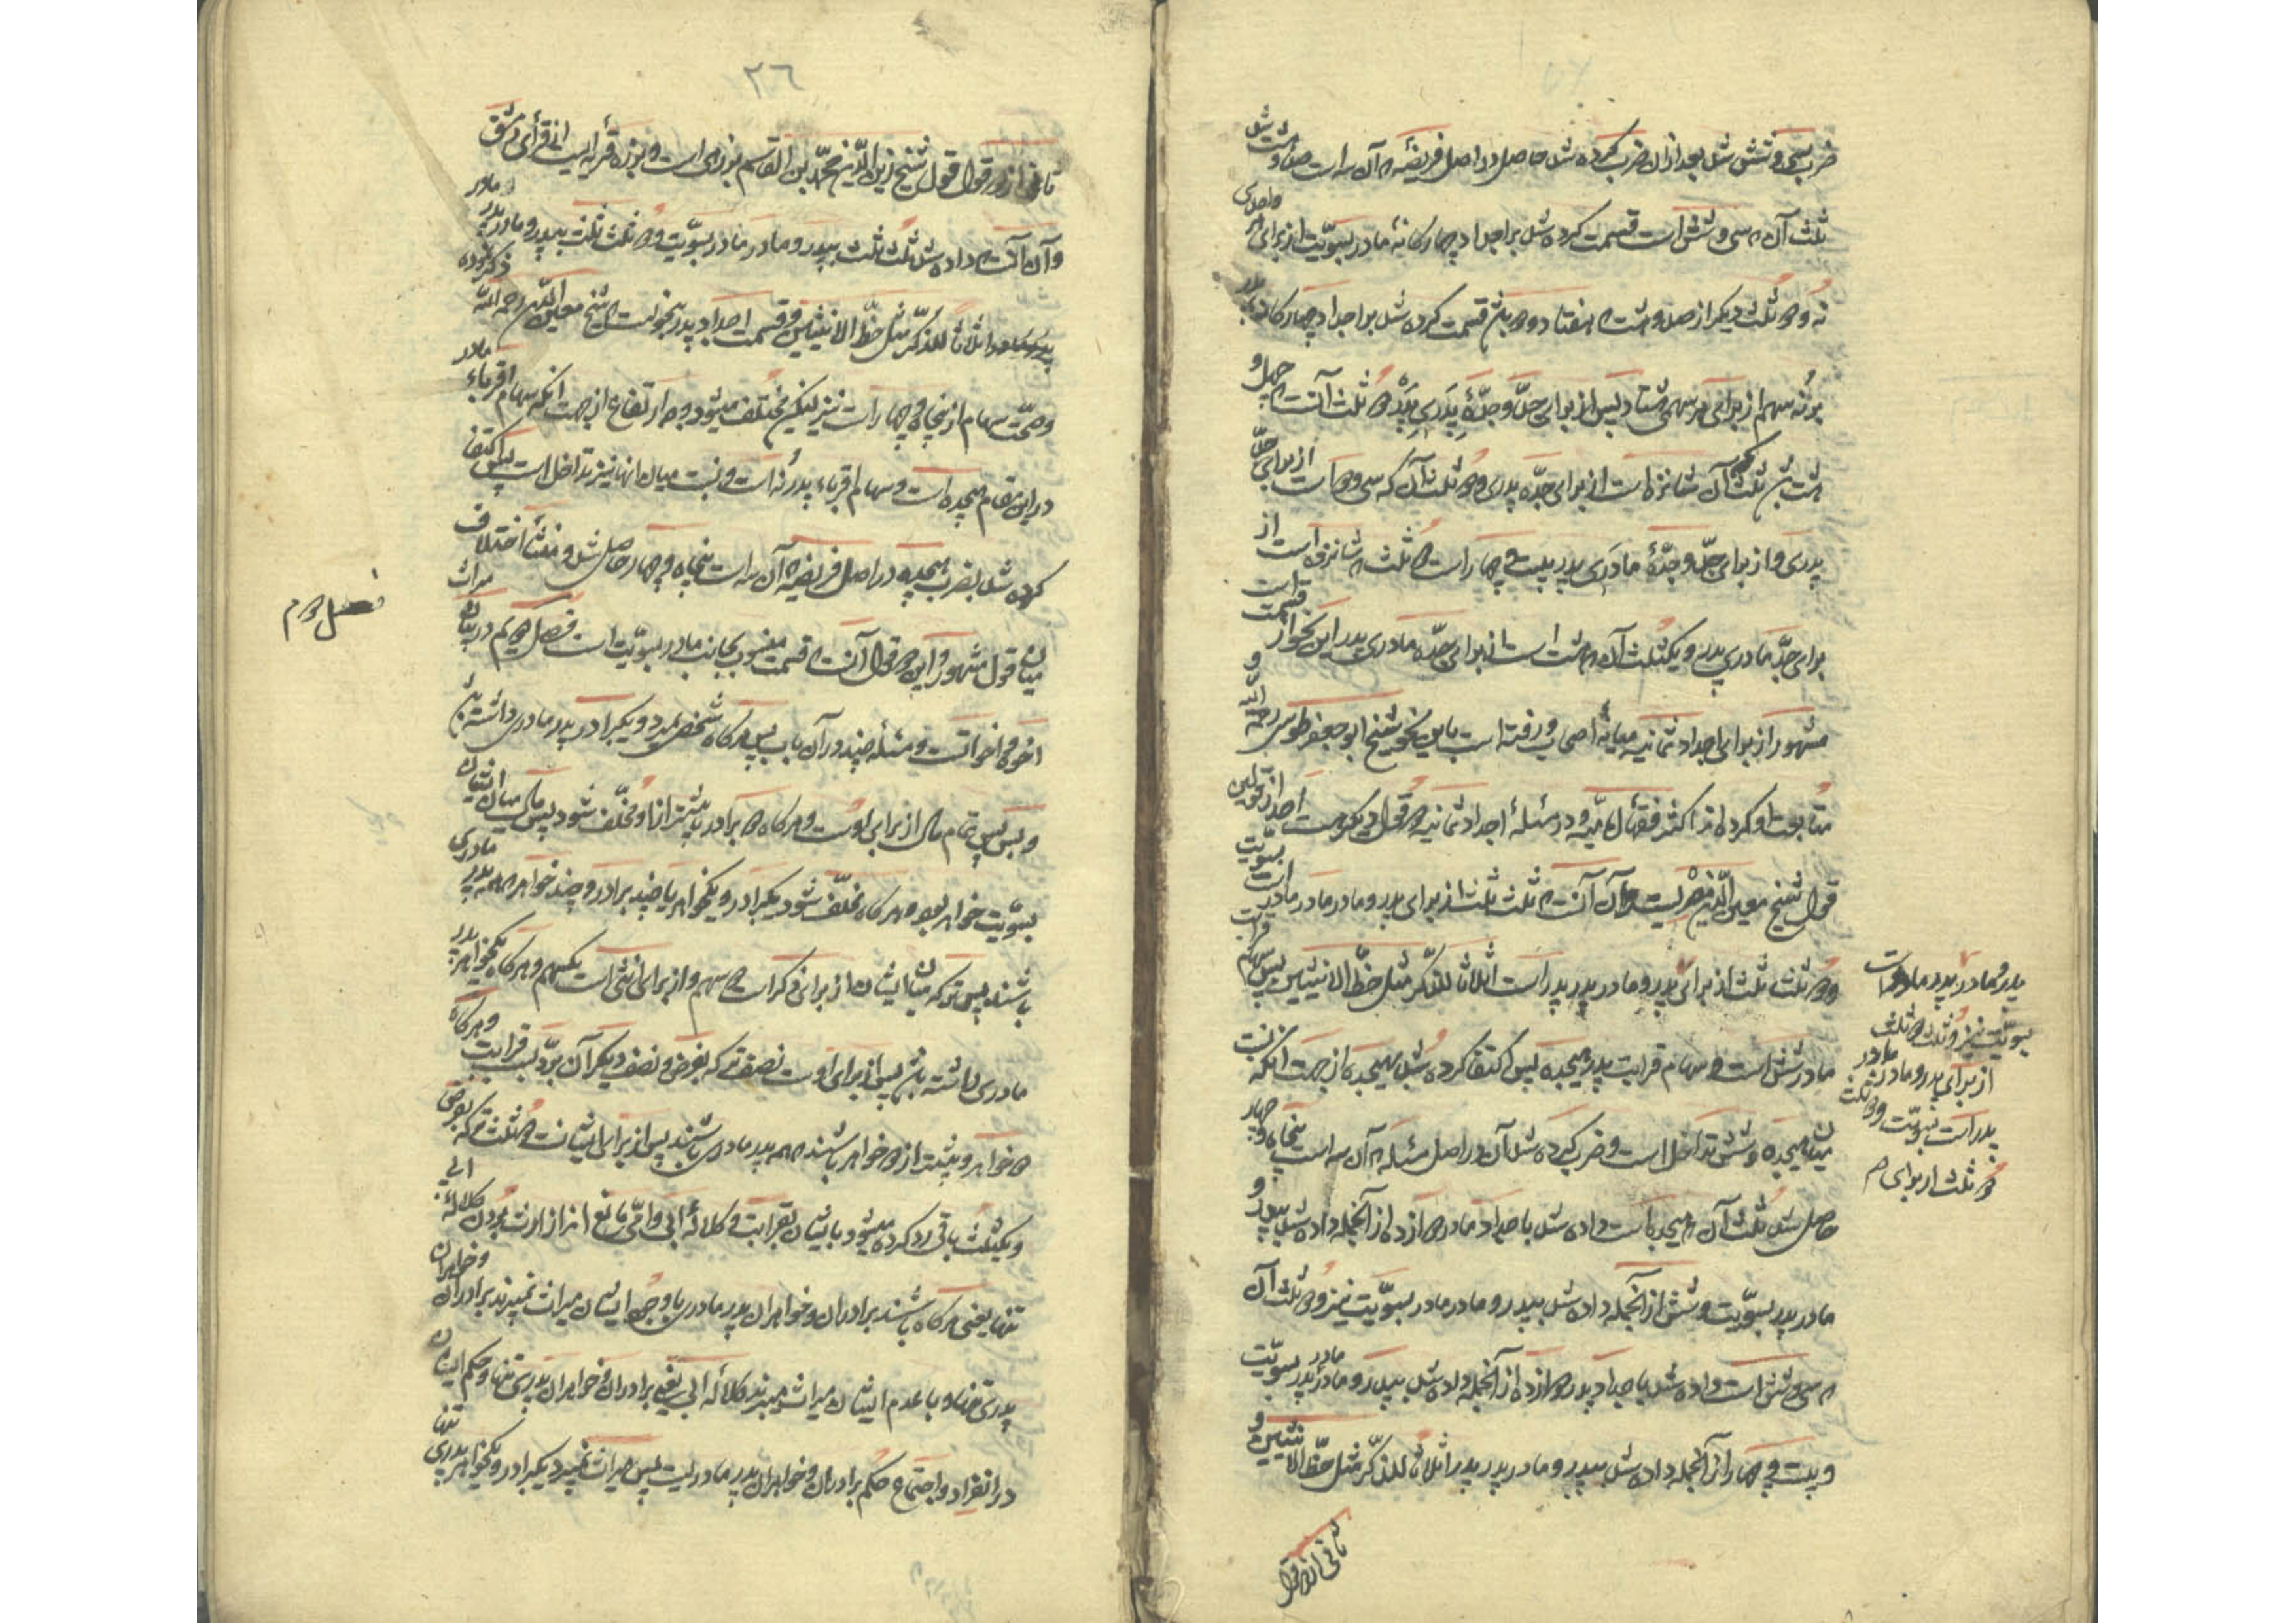 ضرب سی و شش شد بعد از آن ضرب کرده شد حاصل در اصل فریضه که آن سه است صد و هشت شد
ثلث آن که سی و شش است قسمت کرده شد بر اجداد چهارگانه مادر بسویّت از برای هر واحدی
نه و دو ثلث دیگر از صد و هشت که هفتاد و دو باشد قسمت کرده شد بر اجداد چهارگانه پدر
بر نُه سهم از برای هر سهمی هشتاد پس از برای جدّ و جدّهٔ پدری پدر دو ثلث آنست که چهل و
هشت باشد ثلث آن شانزده است از برای جدّه پدری و دو ثلث آن که سی و دو است از برای جدّ
پدری و از برای جدّ و جدّهٔ مادری پدر بیست و چهار است دو ثلث که شانزده است از
برای جدّ مادری پدر و یکثلث آن که هشت است از برای جدّه مادری پدر این نحو از قسمت است
مشهور از برای اجداد ثمانیه میانهٔ اصحاب و رفته است باین نحو شیخ ابو جعفر طوسی رحمه الله و
متابعت او کرده‌اند اکثر فقهای امامیّه و در مسئلهٔ اجداد ثمانیه دو قول دیگر هست احد از قولین
قول شیخ معین الدّین مصریست و آن آنست که ثلث ثلث از برای پدر و مادر مادر مادر است بسویّت
و دو ثلث ثلث از برای پدر و مادر پدر پدر است اثلاثا للذکر مثل حظّ الانثیین پس سهام قرابت
مادر شش است و سهام قرابت پدر هیجده پس اکتفا کرده شد بهیجده از جهت انکه نسبت
میان هیجده و شش تداخل است و ضرب کرده شد آن در اصل مسئله که آن سه است پنجاه و چهار
حاصل شد ثلث آن که هیجده است داده شد باجداد مادر دوازده از آنجمله داده شد بپدر و
مادر پدر بسویّت و شش از آنجمله داده شد بپدر و مادر مادر بسویّت نیز و دو ثلث آن
که سی و شش است داده شد باجداد پدر دوازده از آنجمله داده شد بپدر و مادر مادر پدر بسویّت
و بیست و چهار از آنجمله داده شد بپدر و مادر پدر پدر اثلاثا للذکر مثل حظّ الانثیین و
ثانی از دو قول
پدر و مادر پدر مادر است
بسویّت نیز و ثلث دو ثلث
از برای پدر و مادر مادر
پدر است بسویّت و دو ثلث
دو ثلث از برای م
٢٦
ثانی از دو قول قول شیخ زین الدّین محمّد بن القاسم بزرهی است و بزره قریه ایست از قرأی دمشق
و آن آنست که داده شد ثلث ثلث بپدر و مادر مادر مادر بسویّت و دو ثلث ثلث بپدر و مادر پدر مادر
اثلاثا للذکر مثل حظّ الانثیین و قسمت اجداد پدر بنحویست که شیخ معین الدّین رحمه الله ذکر نموده
و صحّت سهام از پنجاه و چهار است نیز لیکن مختلف میشود وجه ارتفاع از جهت آنکه سهام اقرباء مادر
در این مقام هیجده است و سهام اقرباء پدر نه است و نسبت میان آنها نیز تداخل است پس اکتفا
کرده شد بضرب هیجده در اصل فریضه که آن سه است پنجاه و چهار حاصل شد و منشأ اختلاف
میان قول مشهور و این دو قول آنست که قسمت منسوب بجانب مادر بسویّت است فصل دویم در بیان میراث
اخوه و اخوات است و مسئله چند در آن باب پس هرگاه شخصی بمیرد و یکبرادر پدر مادری داشته باشد
و بس پس تمام مال از برای اوست و هرگاه دو برادر یا بیشتر از او مخلّف شود پس مال میان ایشان
بسویّت خواهد بود و هرگاه مخلّف شود یکبرادر و یکخواهر یا چند برادر و چند خواهر همه پدر مادری
باشند پس ترکه میان ایشان از برای ذکر است دو سهم و از برای انثی است یکسهم و هرگاه یکخواهر پدر
مادری داشته باشد پس از برای اوست نصف ترکه بفرض و نصف دیگر آن بردّ بسبب قرابت و هرگاه
دو خواهر و بیشتر از دو خواهر باشند همه پدر مادری باشند پس از برای ایشانست دو ثلث ترکه بفرض
و یکثلث باقی رد کرده میشود بایشان بقرابت و کلالهٔ ابی و امّی مانع اند از ارث بردن کلالهٔ ابی
تنها یعنی هرگاه باشند برادران و خواهران پدر مادری با وجود ایشان میراث نمیبرند برادران و خواهران
پدری تنها و با عدم ایشان میراث میبرند کلالهٔ ابی یعنی برادران و خواهران پدری تنها و حکم ایشان
در انفراد و اجتماع حکم برادران و خواهران پدر مادریست پس میراث نمیبرد یکبرادر و یکخواهر پدری تنها
فصل دوم